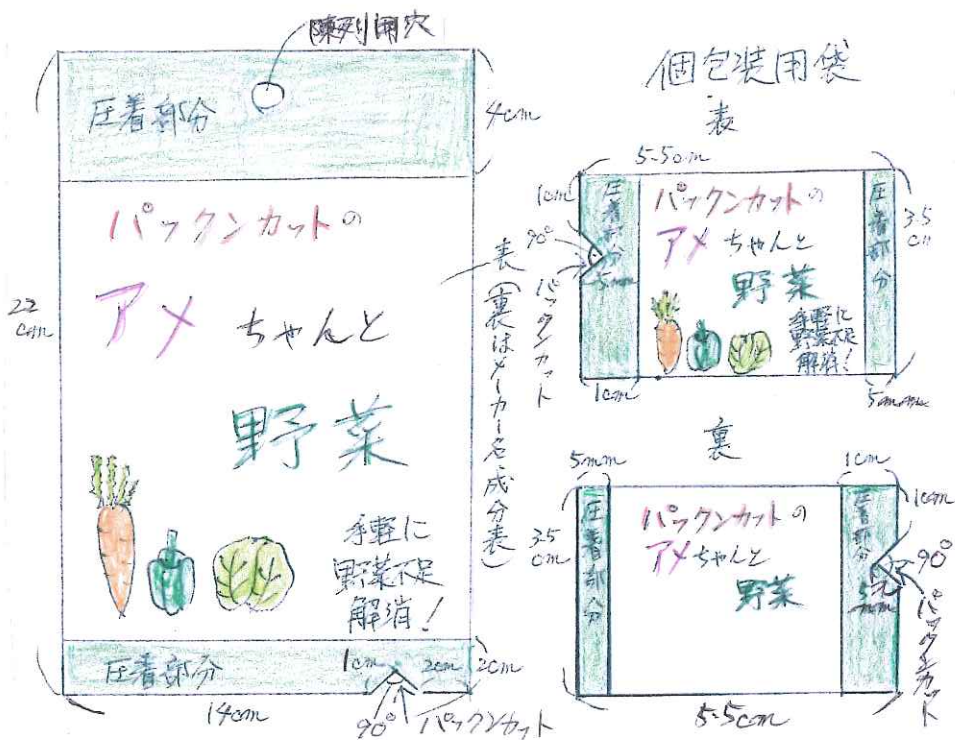 陳列用穴
圧着部分
4cm
パックンカットの
アメ ちゃんと
野菜
22cm
手軽に
野菜不足
解消!
圧着部分
1cm
2cm
2cm
14cm
90°
パックンカット
表(裏はメーカー名、成分表)
個包装用袋
表
5.5cm
1cm
圧着部分
90°
5mm
パックンカット
パックンカットの
アメ ちゃんと
野菜
手軽に
野菜不足
解消!
圧着部分
3.5cm
1cm
5mm
裏
5mm
1cm
圧着部分
3.5cm
パックンカットの
アメちゃんと
野菜
圧着部分
1cm
90°
5mm
パックンカット
5.5cm